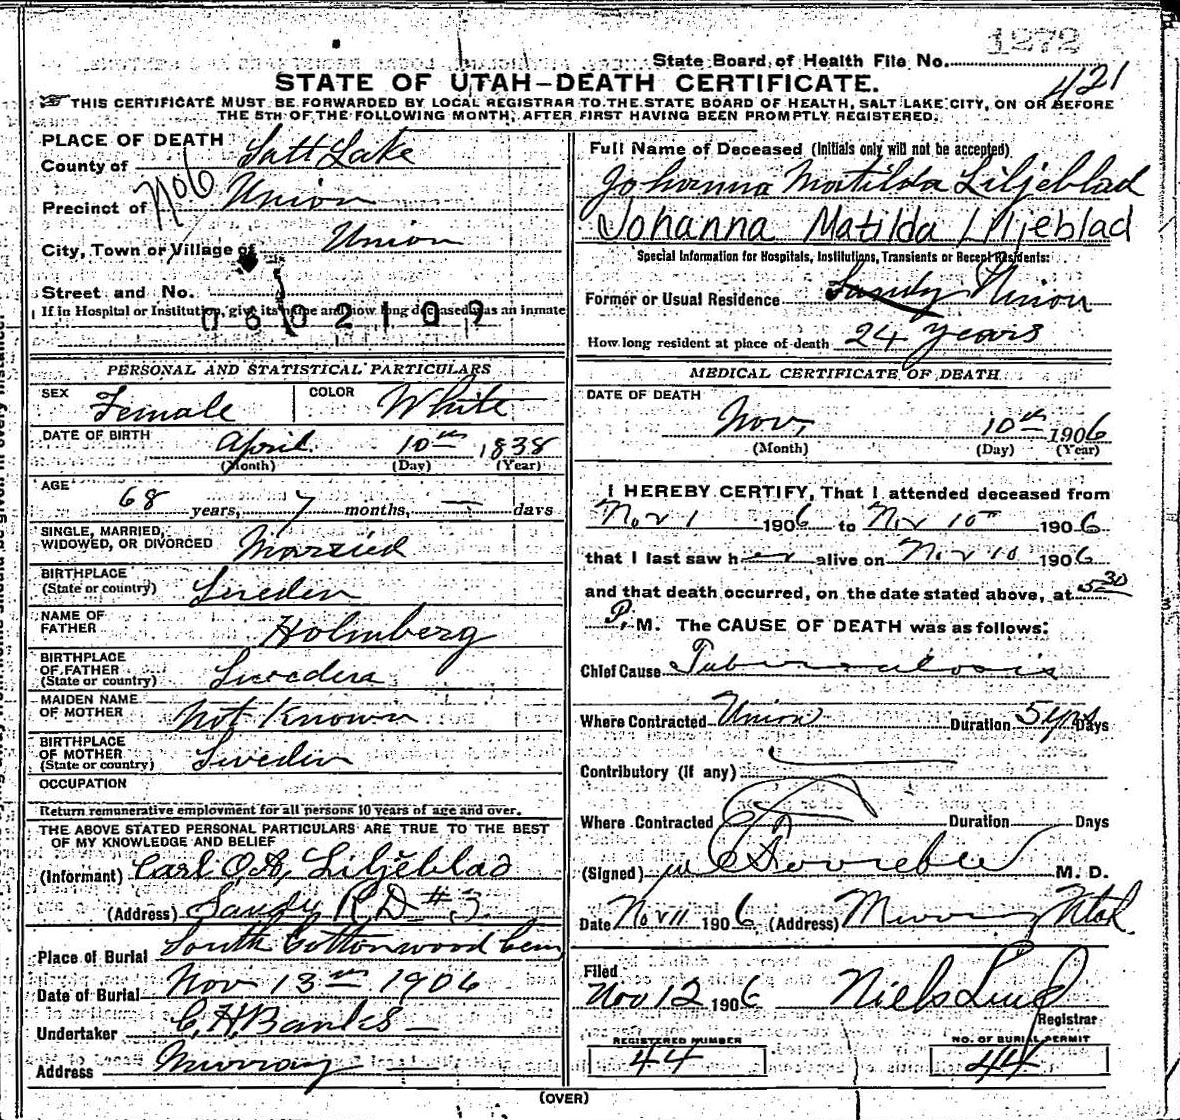 1272
State Board of Health File No.
421
STATE OF UTAH—DEATH CERTIFICATE.
THIS CERTIFICATE MUST BE FORWARDED BY LOCAL REGISTRAR TO THE STATE BOARD OF HEALTH, SALT LAKE CITY, ON OR BEFORE
THE 5TH OF THE FOLLOWING MONTH, AFTER FIRST HAVING BEEN PROMPTLY REGISTERED.
PLACE OF DEATH
County of Salt Lake
Precinct of No 6 Union
City, Town or Village of Union
Street and No.
If in Hospital or Institution, give its name and how long deceased was an inmate
0602107
PERSONAL AND STATISTICAL PARTICULARS
SEX Female COLOR White
DATE OF BIRTH April 10th 1838
(Month) (Day) (Year)
AGE
68 years, 7 months, — days
SINGLE, MARRIED,
WIDOWED, OR DIVORCED Married
BIRTHPLACE
(State or country) Sweden
NAME OF
FATHER Holmberg
BIRTHPLACE
OF FATHER
(State or country) Sweden
MAIDEN NAME
OF MOTHER Not Known
BIRTHPLACE
OF MOTHER
(State or country) Sweden
OCCUPATION
Return remunerative employment for all persons 10 years of age and over.
THE ABOVE STATED PERSONAL PARTICULARS ARE TRUE TO THE BEST
OF MY KNOWLEDGE AND BELIEF
(Informant) Carl O.A. Liljeblad
(Address) Sandy R D # 3
Place of Burial South Cottonwood Cem
Date of Burial Nov 13th 1906
Undertaker C. H. Banks
Address Murray
Full Name of Deceased (Initials only will not be accepted)
Johanna Matilda Liljeblad
Johanna Matilda Liljeblad
Special Information for Hospitals, Institutions, Transients or Recent Residents:
Former or Usual Residence Sandy Union
How long resident at place of death 24 years
MEDICAL CERTIFICATE OF DEATH
DATE OF DEATH
Nov. 10th 1906
(Month) (Day) (Year)
I HEREBY CERTIFY, That I attended deceased from
Nov 1 1906 to Nov 10th 1906
that I last saw her alive on Nov 10 1906
and that death occurred, on the date stated above, at 5 30
P. M. The CAUSE OF DEATH was as follows:
Chief Cause Tuberculosis
Where Contracted Union Duration 5 yrs Days
Contributory (if any)
Where Contracted Duration Days
(Signed) M. D.
Date Nov 11 1906 (Address) Murray Utah
Filed
Nov 12 1906 Niels Lind
Registrar
REGISTERED NUMBER
44
NO. OF BURIAL PERMIT
44
(OVER)